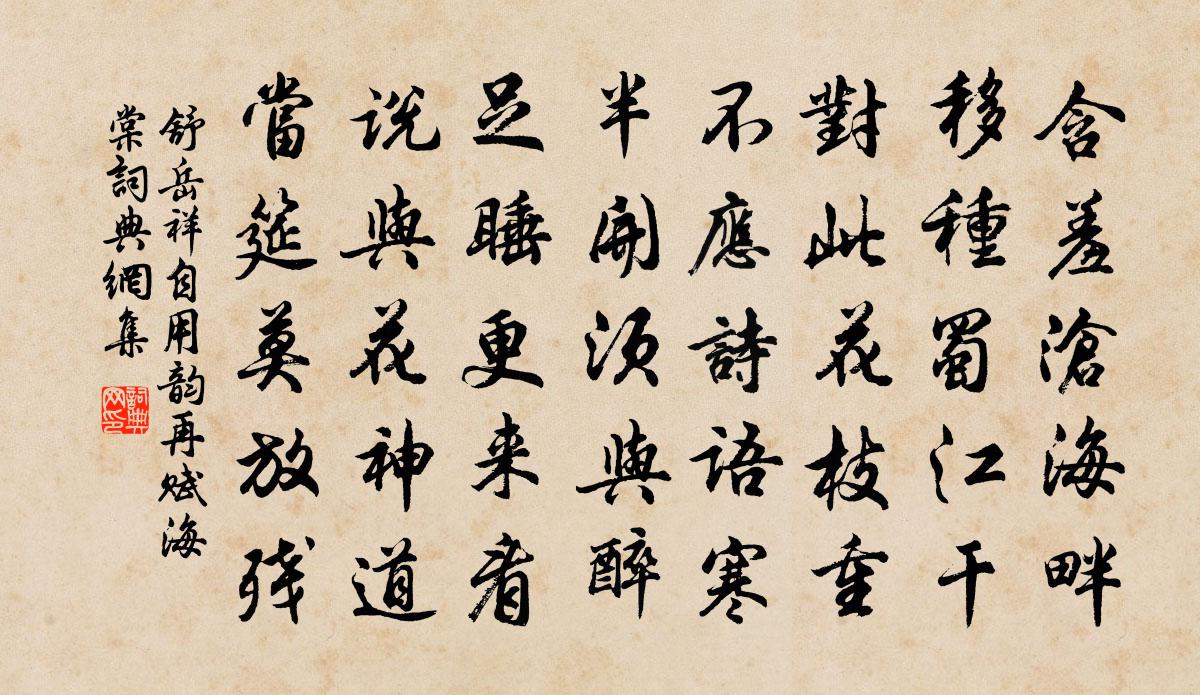 含羞滄海畔
移種蜀江干
對此花枝重
不應詩語寒
半開須與醉
足睡更来看
説與花神道
當筵莫放残
舒岳祥自用韵再赋海
棠詞典網集
詞典
网印